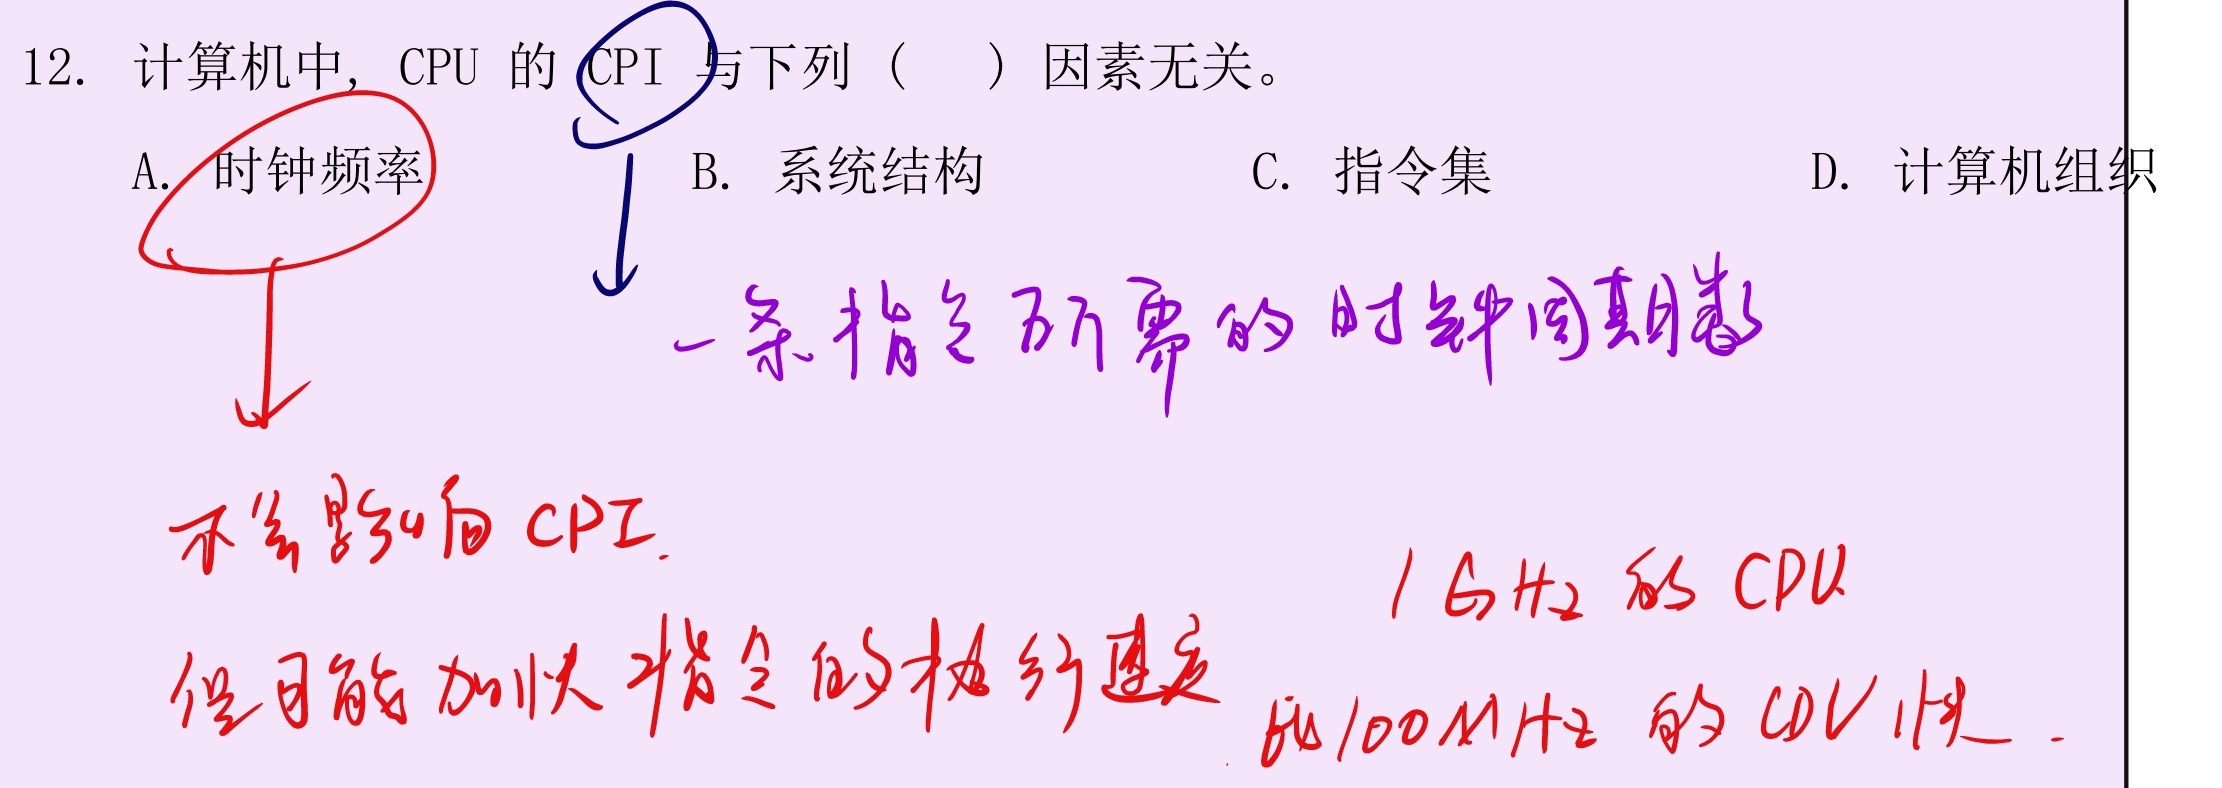 12. 计算机中, CPU 的 CPI 与下列（ ）因素无关。
A. 时钟频率 B. 系统结构 C. 指令集 D. 计算机组织
一条指令所需的时钟周期数
不会影响CPI.
1GHz 的 CPU
但可能加快指令的执行速度
比100MHz 的 CPU 快.